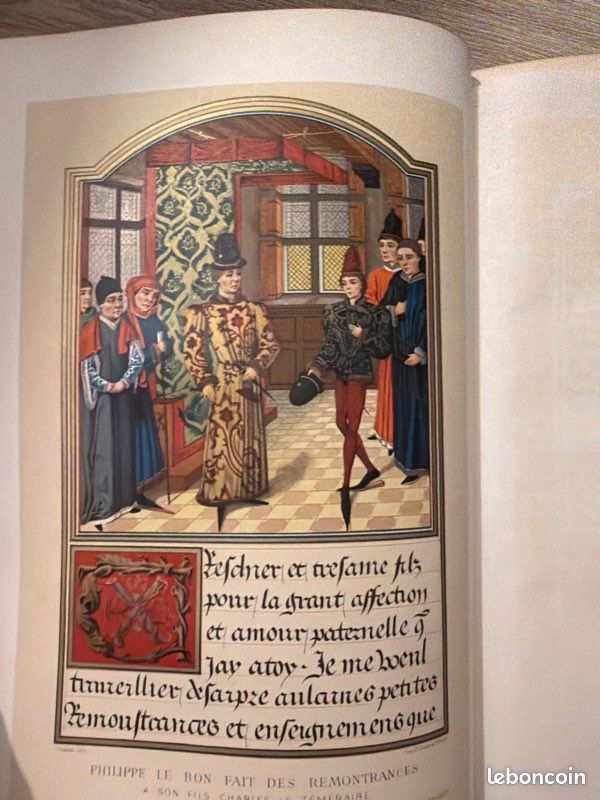 Reschier et tresame filz
pour la grant affection
et amour paternelle q̃
Jay atoy. Je me veul
traveillier descripre aulcunes petites
Remonstrances et enseignemens que
PHILIPPE LE BON FAIT DES REMONTRANCES
A SON FILS CHARLES LE TÉMÉRAIRE
leboncoin